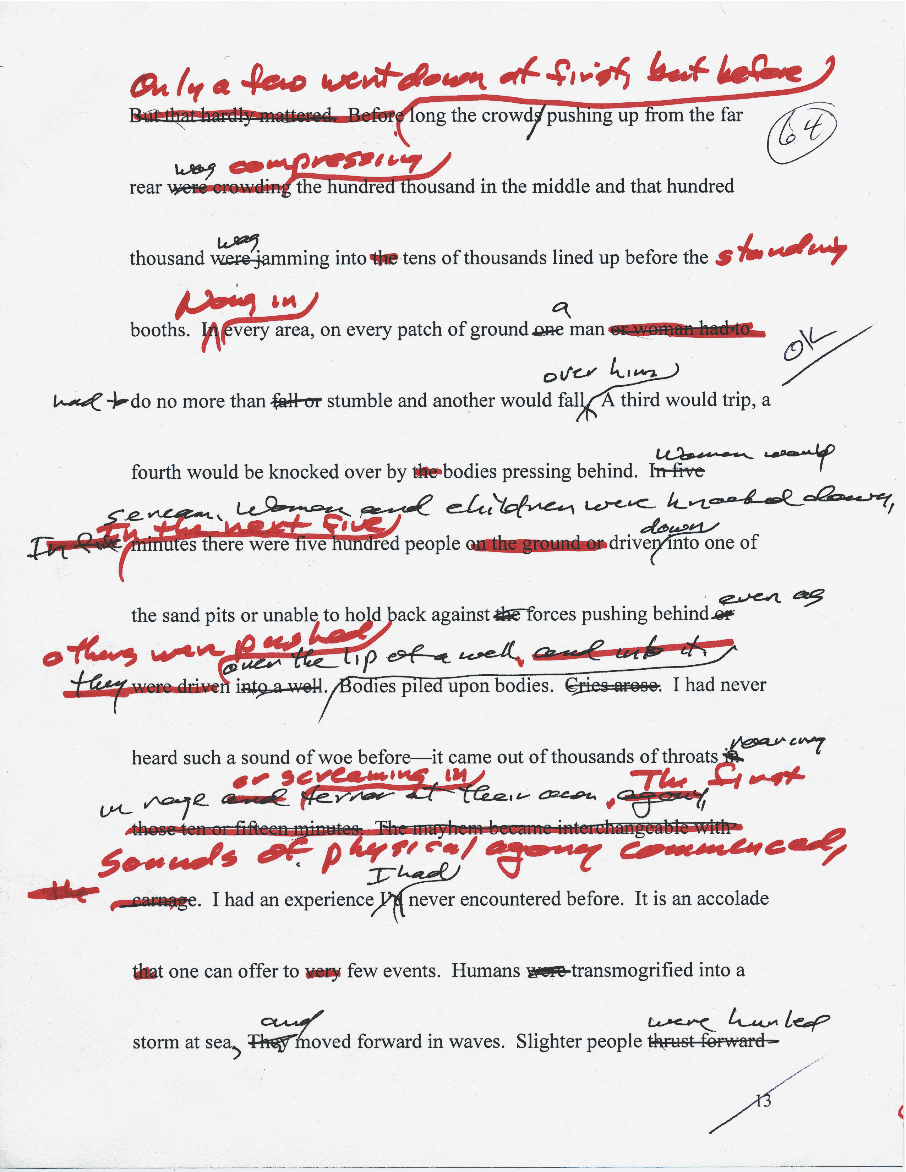 Only a few went down at first, but before
But that hardly mattered. Before long the crowds pushing up from the far
64
was compressing
rear were crowding the hundred thousand in the middle and that hundred
was
thousand were jamming into the tens of thousands lined up before the standing
Nong in
booths. In every area, on every patch of ground one man or woman had to
a
OK
over him
had to do no more than fall or stumble and another would fall. A third would trip, a
Women would
fourth would be knocked over by the bodies pressing behind. In five
scream. Women and children were knocked down,
In the next five
down
In five minutes there were five hundred people on the ground or driven into one of
even as
the sand pits or unable to hold back against the forces pushing behind or
others were pushed
over the lip of a well, and into it.
they were driven into a well. Bodies piled upon bodies. Cries arose. I had never
roaring
heard such a sound of woe before—it came out of thousands of throats in
or screaming in The first
in rage and terror at their own agony,
those ten or fifteen minutes. The mayhem became interchangeable with
Sounds of physical agony commenced,
I had
the carnage. I had an experience I'd never encountered before. It is an accolade
that one can offer to very few events. Humans were transmogrified into a
and were hurled
storm at sea, They moved forward in waves. Slighter people thrust forward
13